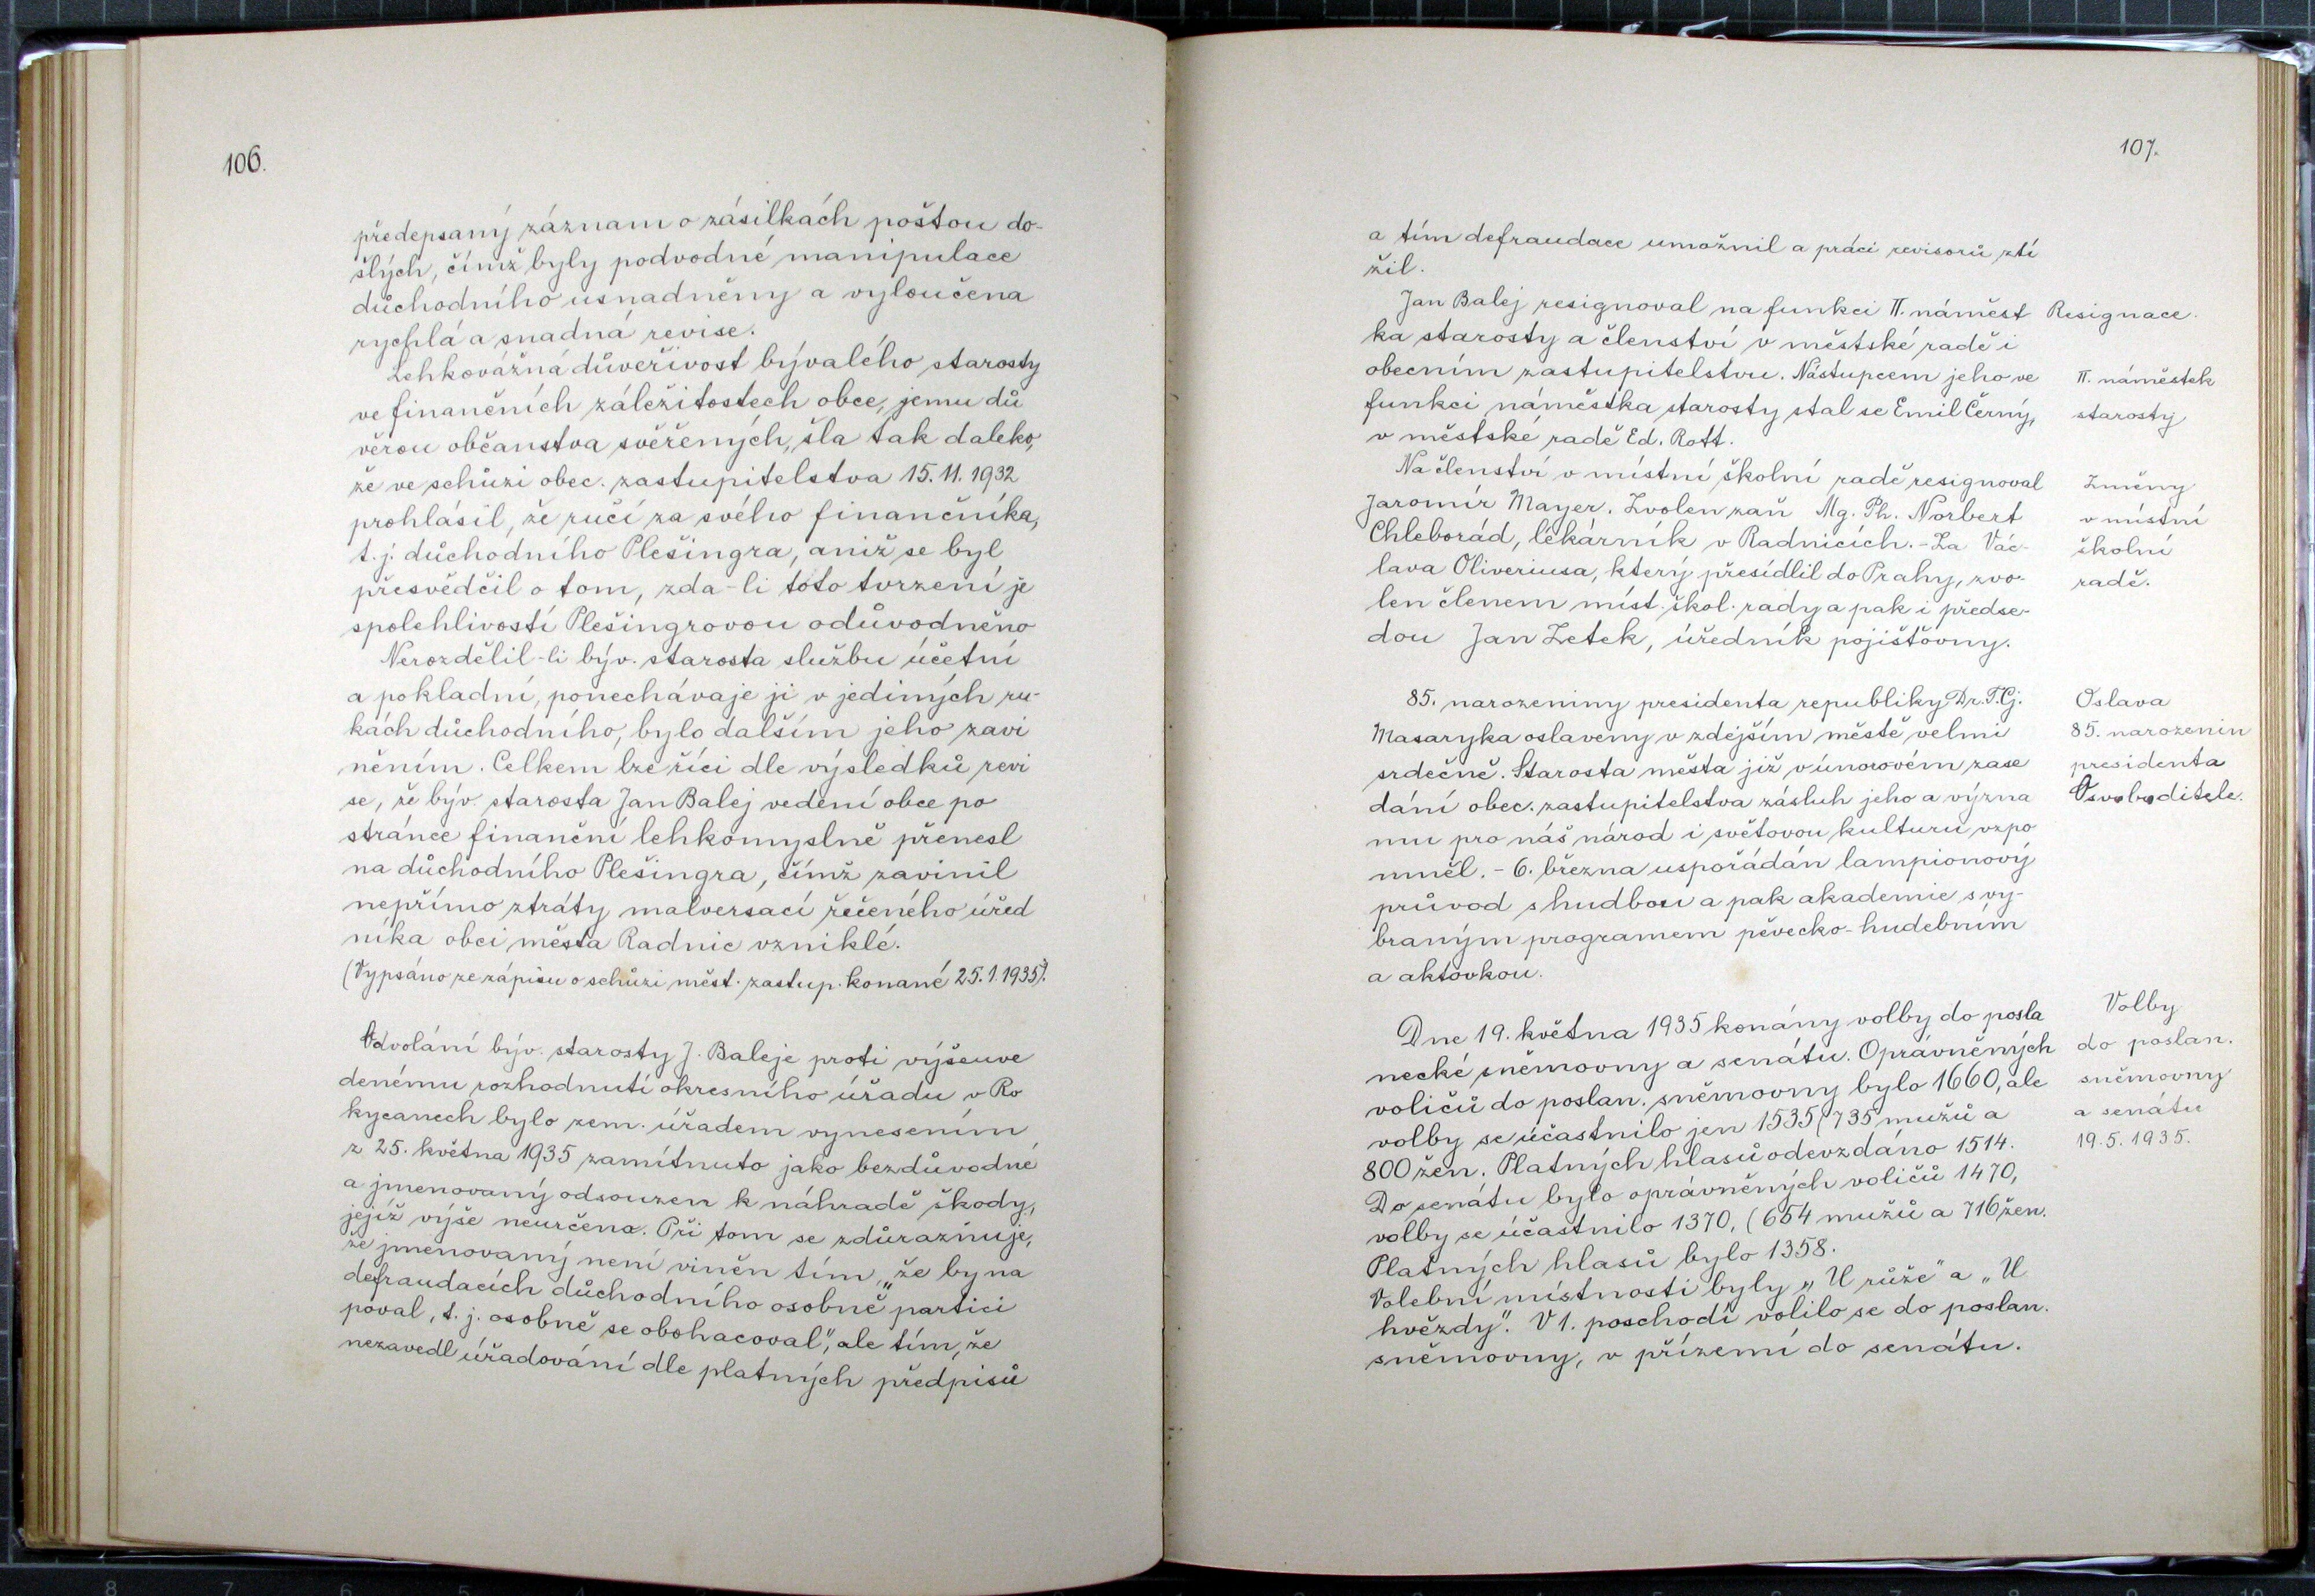 106.
předepsaný záznam o zásilkách poštou do-
šlých, čímž byly podvodné manipulace
důchodního usnadněny a vyloučena
rychlá a snadná revise.
Lehkovážná důvěřivost bývalého starosty
ve finančních záležitostech obce, jemu dů
věrou občanstva svěřených, šla tak daleko,
že ve schůzi obec. zastupitelstva 15.11.1932
prohlásil, že ručí za svého finančníka,
t.j. důchodního Plešingra, aniž se byl
přesvědčil o tom, zda-li toto tvrzení je
spolehlivostí Plešingrovou odůvodněno
Nerozdělil-li býv. starosta službu účetní
a pokladní, ponechávaje ji v jediných ru-
kách důchodního, bylo dalším jeho zavi
něním. Celkem lze říci dle výsledků revi
se, že býv. starosta Jan Balej vedení obce po
stránce finanční lehkomyslně přenesl
na důchodního Plešingra, čímž zavinil
nepřímo ztráty malversací řečeného úřed
níka obci města Radnic vzniklé.
(Vypsáno ze zápisu o schůzi měst. zastup. konané 25.1.1935).
Odvolání býv. starosty J. Baleje proti výšeuve
denému rozhodnutí okresního úřadu v Ro
kycanech bylo zem. úřadem vynesením
z 25. května 1935 zamítnuto jako bezdůvodné
a jmenovaný odsouzen k náhradě škody,
jejíž výše neurčena. Při tom se zdůrazňuje,
že jmenovaný není viněn tím, „že by na
defraudacích důchodního osobně partici
poval, t.j. osobně se obohacoval", ale tím, že
nezavedl úřadování dle platných předpisů
107.
a tím defraudace umožnil a práci revisorů ztí
žil.
Jan Balej resignoval na funkci II. náměst
ka starosty a členství v městské radě i
obecním zastupitelstvu. Nástupcem jeho ve
funkci náměstka starosty stal se Emil Černý,
v městské radě Ed. Rott.
Resignace.
II. náměstek
starosty
Na členství v místní školní radě resignoval
Jaromír Mayer. Zvolen zaň Mg. Ph. Norbert
Chleborád, lékárník v Radnicích. - Za Vác-
lava Oliveriusa, který přesídlil do Prahy, zvo-
len členem míst. škol. rady a pak i předse-
dou Jan Zetek, úředník pojišťovny.
Změny
v místní
školní
radě.
85. narozeniny presidenta republiky Dr. T.G.
Masaryka oslaveny v zdejším městě velmi
srdečně. Starosta města již v únorovém zase
dání obec. zastupitelstva zásluh jeho a význa
mu pro náš národ i světovou kulturu vzpo
mněl. - 6. března uspořádán lampionový
průvod s hudbou a pak akademie s vy-
braným programem pěvecko-hudebním
a aktovkou.
Oslava
85. narozenin
presidenta
Osvoboditele.
Dne 19. května 1935 konány volby do posla
necké sněmovny a senátu. Oprávněných
voličů do poslan. sněmovny bylo 1660, ale
volby se účastnilo jen 1535 (735 mužů a
800 žen. Platných hlasů odevzdáno 1514.
Do senátu bylo oprávněných voličů 1470,
volby se účastnilo 1370, (654 mužů a 716 žen.
Platných hlasů bylo 1358.
Volební místnosti byly „U růže" a „U
hvězdy". V 1. poschodí volilo se do poslan.
sněmovny, v přízemí do senátu.
Volby
do poslan.
sněmovny
a senátu
19.5.1935.